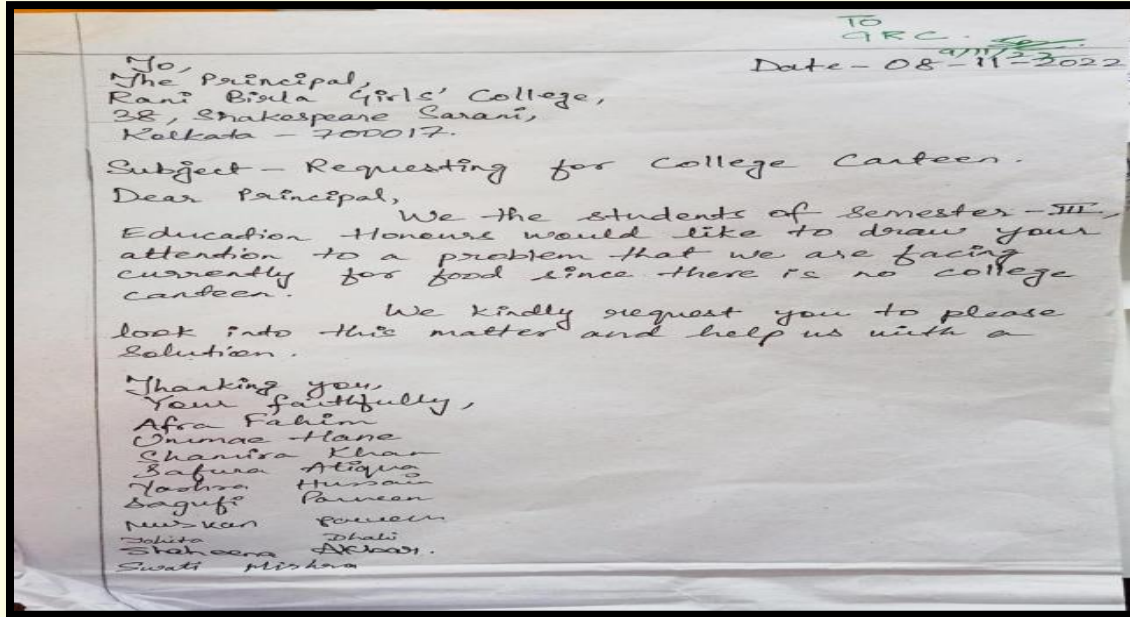 TO
GRC.
9/11/22
To,
Date - 08-11-2022
The Principal,
Rani Birla Girls' College,
38, Shakespeare Sarani,
Kolkata - 700017.
Subject - Requesting for College Canteen.
Dear Principal,
We the students of Semester - III,
Education Honours would like to draw your
attention to a problem that we are facing
currently for food since there is no college
canteen.
We kindly request you to please
look into this matter and help us with a
Solution.
Thanking you,
Your faithfully,
Afra Fahim
Hane
Shamira Khan
Safura Atiqua
Hussain
Sagufi Parveen
Muskan Parveen
Dhali
Shaheena Akbar.
Swati Mishra